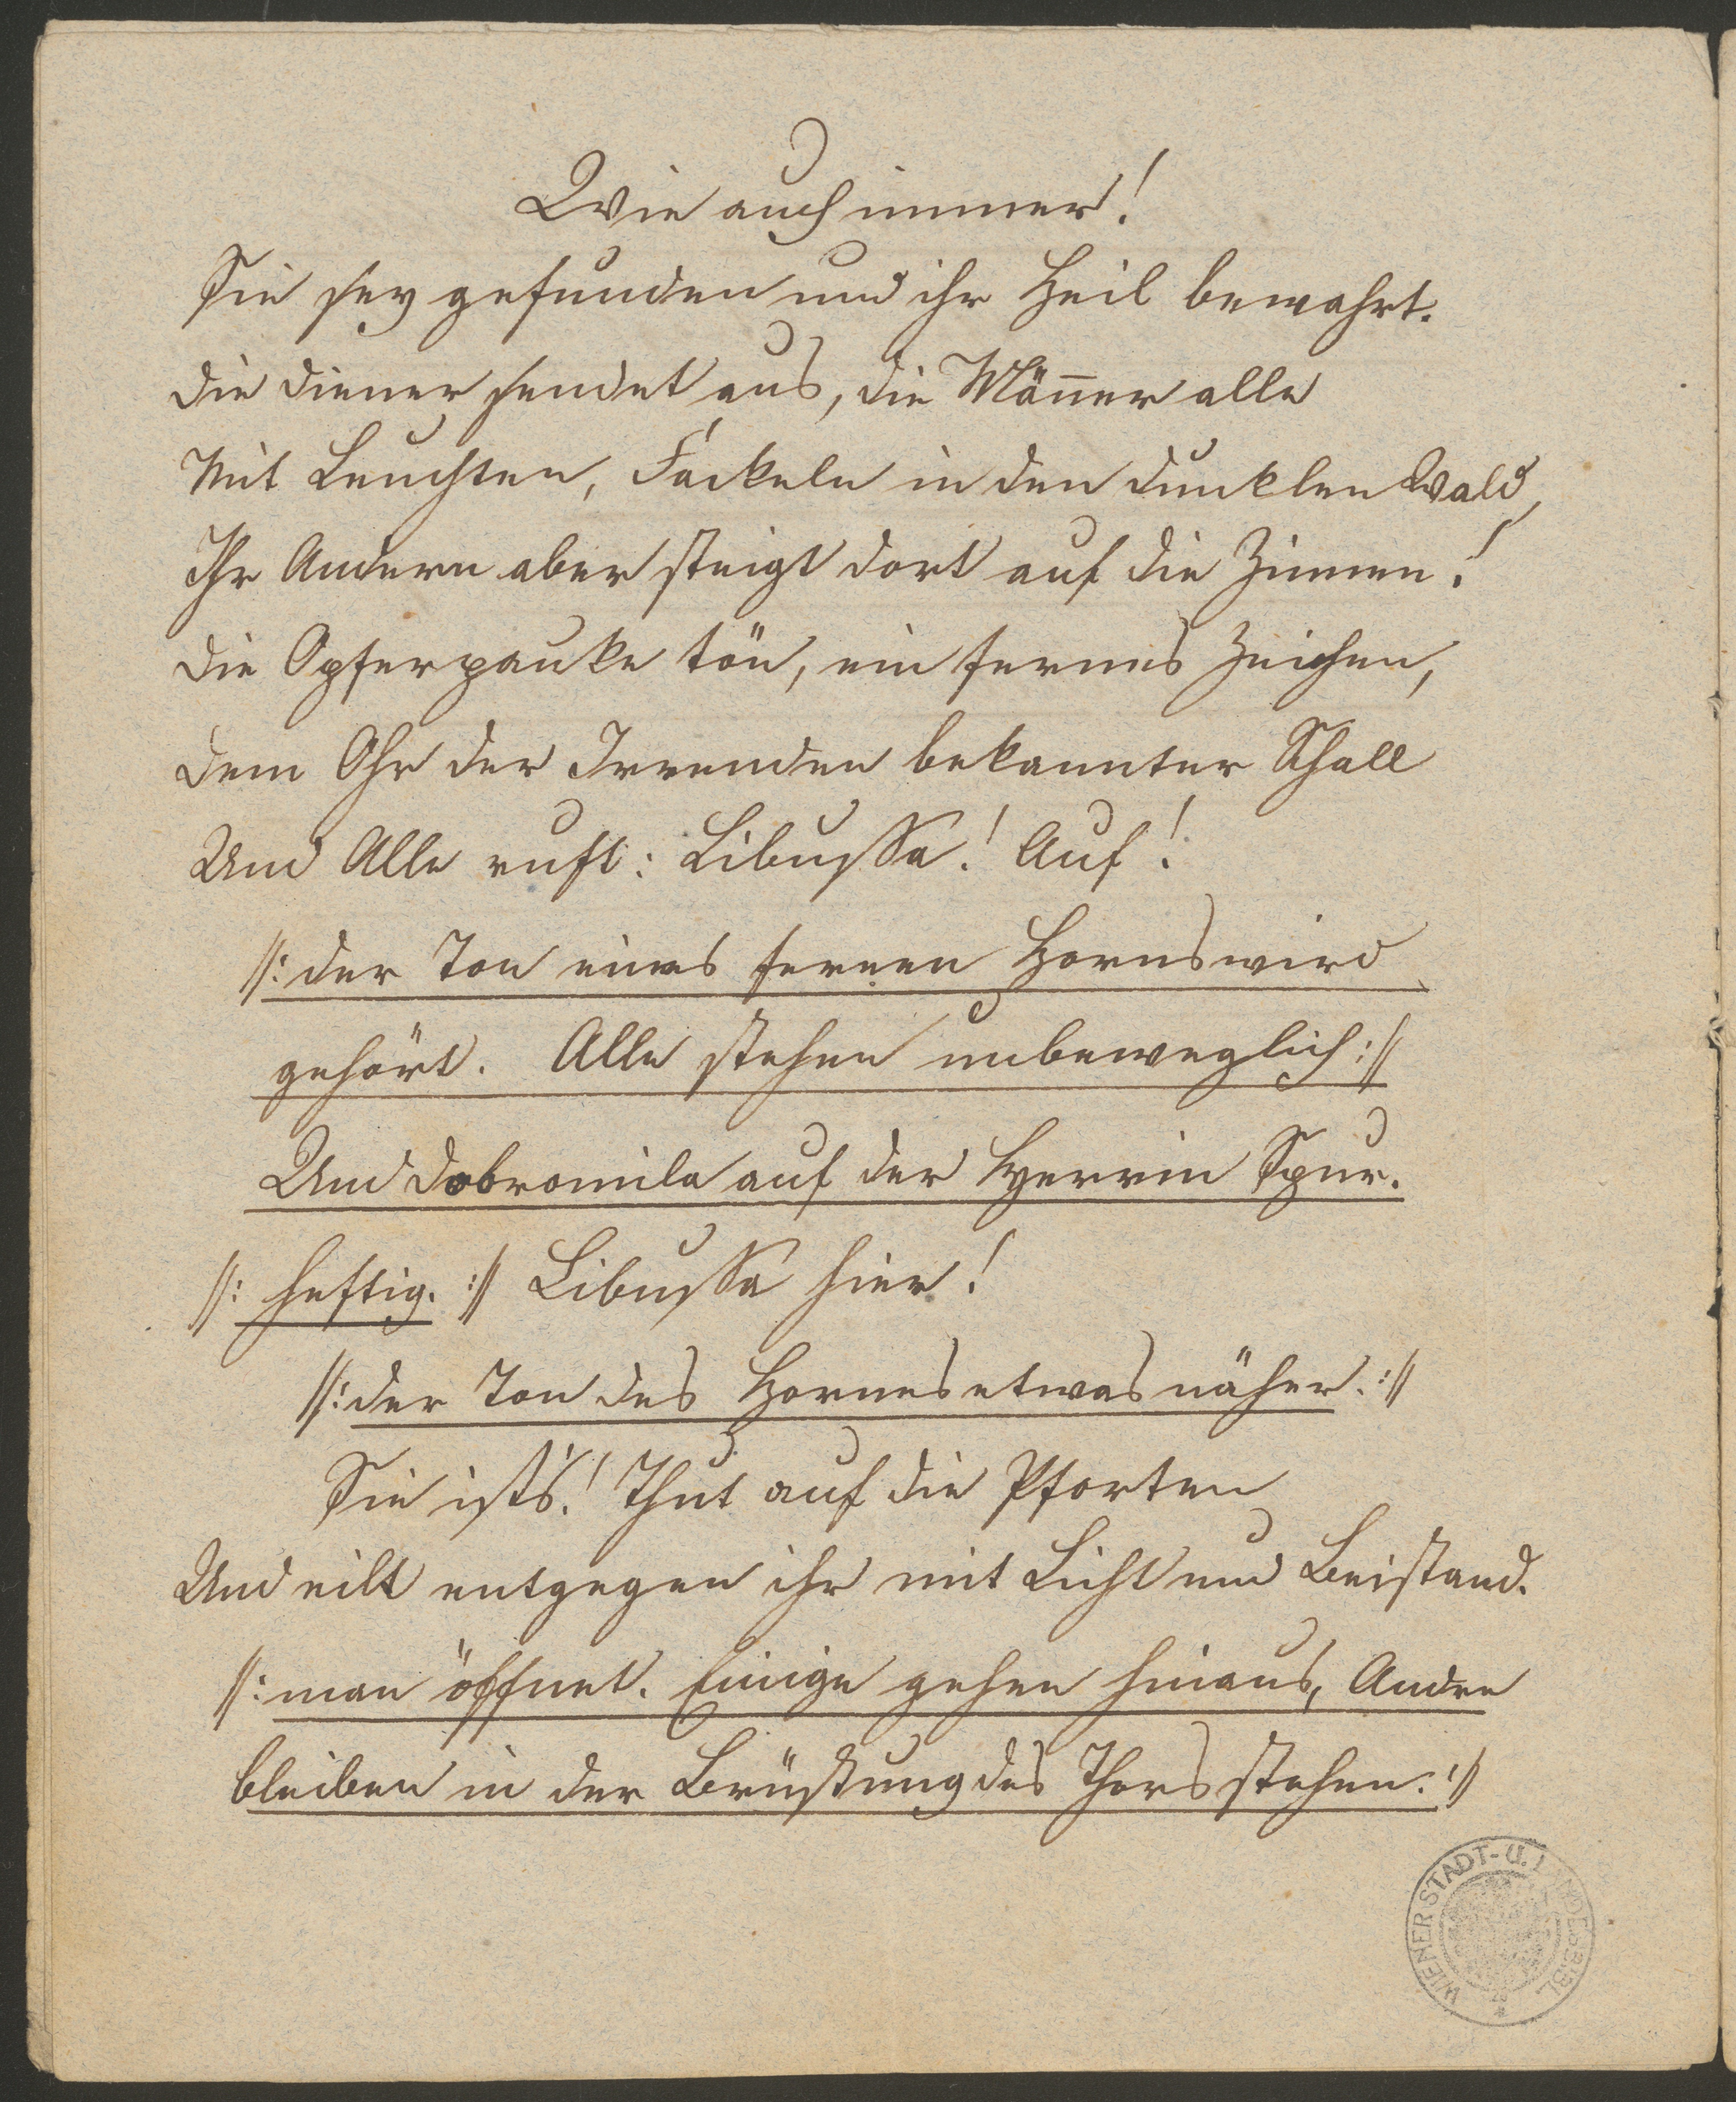 Wie auch immer!
Sie sey gefunden und ihr Heil bewahrt.
Die Diener sendet aus, die Män̄er alle
Mit Leuchten, Fackeln in den dunklen Wald,
Ihr Andern aber steigt dort auf die Zinnen!
Die Opferpauke tön, ein fernes Zeichen,
Dem Ohr der Irrenden bekannter Schall
Und Alle ruft: Libussa! Auf!
//: der Ton eines fernen Horns wird
gehört. Alle stehen unbeweglich ://
Und Dobromila auf der Herrin Spur.
//: heftig. :// Libussa hier!
//: der Ton des Hornes etwas näher. ://
Sie ist's! Thut auf die Pforten
Und eilt entgegen ihr mit Licht und Beistand.
//: man öffnet. Einige gehen hinaus, Andre
bleiben in der Brüstung des Thors stehen. ://
WIENER STADT- U. LANDESBIBL.